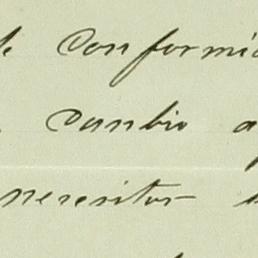 conformid
cambio a
necesitar